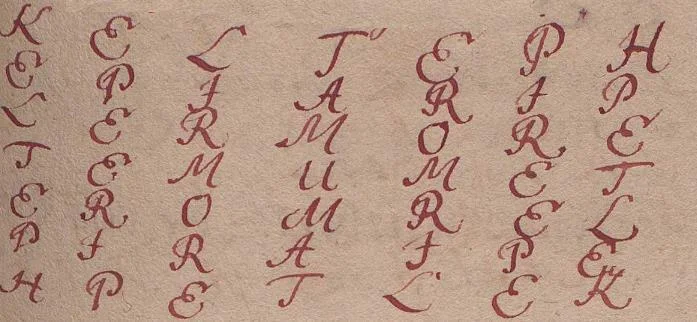 K E L T E P H
E P I A R I P
L E R M O R E
T E M U M E T
E R O M R E L
P I R A I P E
H P E T L E K